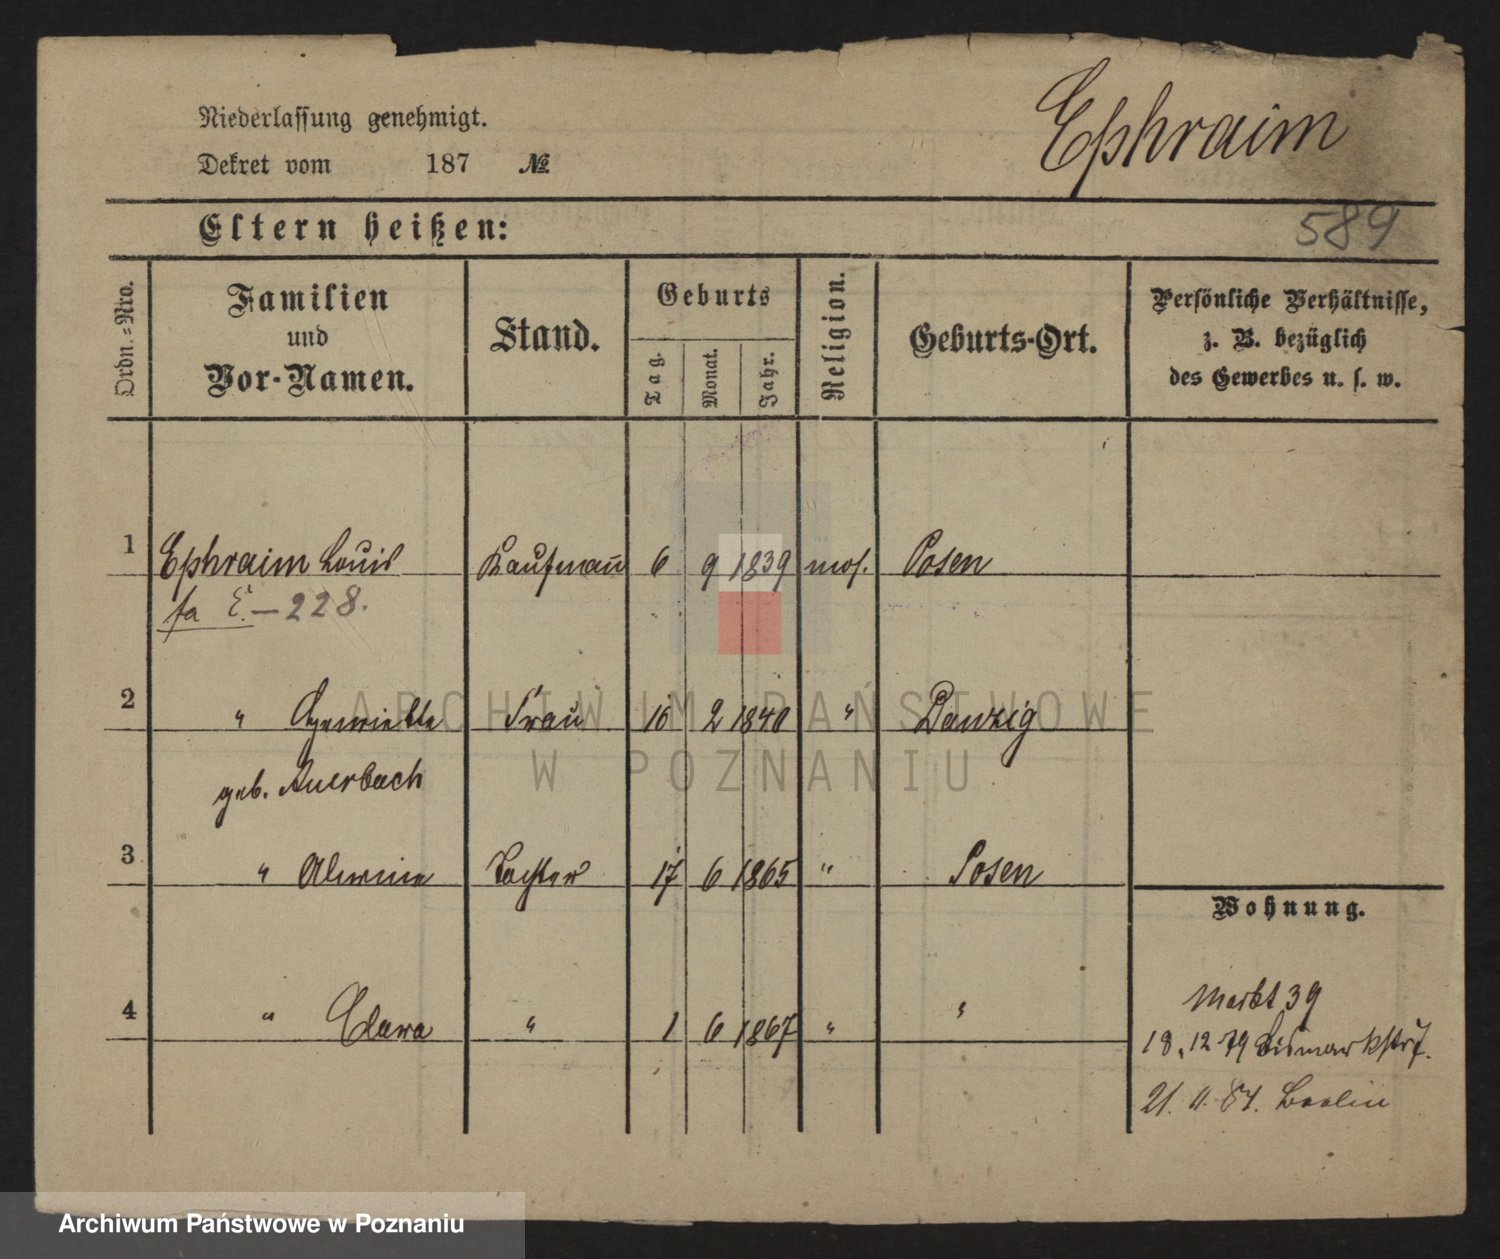 Ephraim
Niederlassung genehmigt.
Dekret vom 187 №
Eltern heißen:
589
Ordn.-Nro.
Familien
und
Vor-Namen.
Stand.
Geburts
Tag.
Monat.
Jahr.
Religion.
Geburts-Ort.
Persönliche Verhältnisse,
z. B. bezüglich
des Gewerbes u. s. w.
1 Ephraim Louis Kaufmann 6 9 1839 mos. Posen
fa E. – 228.
2 " Henriette Frau 16 2 1840 " Danzig
geb. Auerbach
3 " Alwine Tochter 17 6 1865 " Posen
Wohnung.
4 " Clara " 1 6 1867 " "
Markt 39
18. 12 79 Bismarkstr 7.
21. 11. 84. Berlin
ARCHIWUM PAŃSTWOWE
W POZNANIU
Archiwum Państwowe w Poznaniu